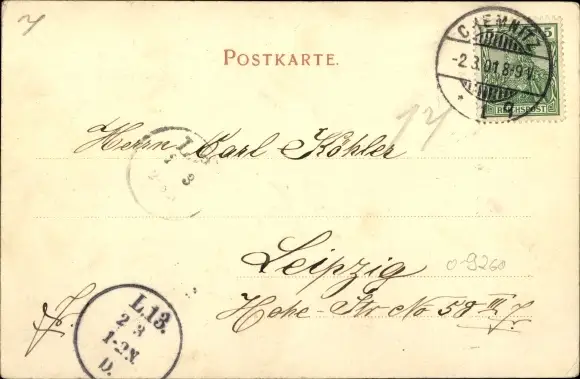 POSTKARTE.
CHEMNITZ
-2.3.01.8-9V.
5
REICHSPOST
14
Herrn Carl Köhler
Leipzig
0-9260
Hohe-Str No 58 III
L.13.
2 3
1-2N.
D.